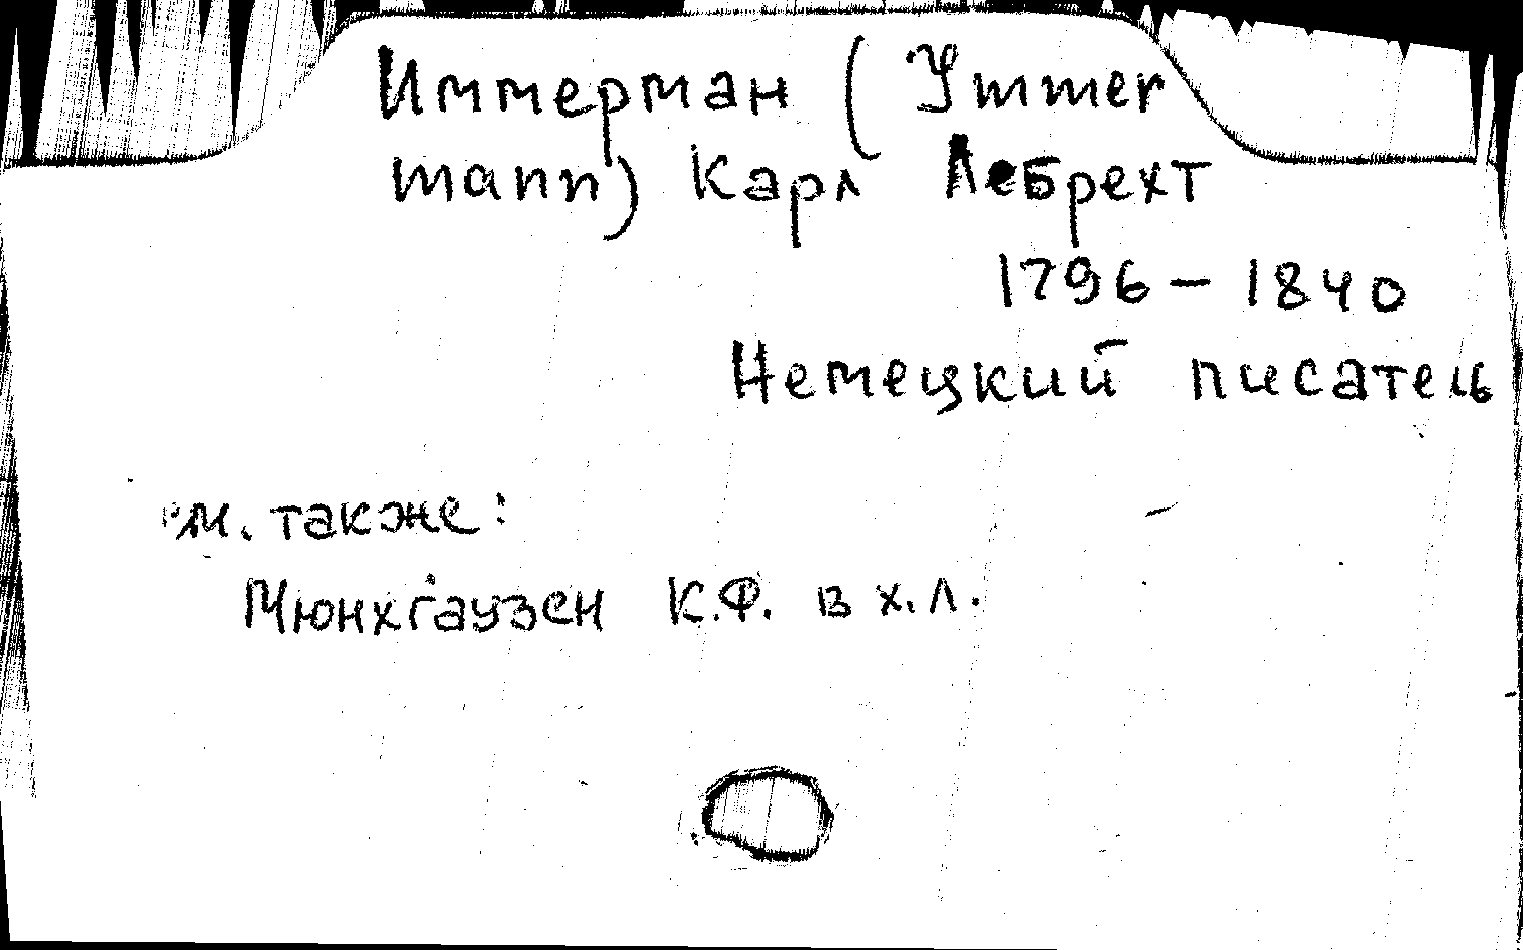 Иммерман (Immer
mann) Карл Лебрехт
1796 – 1840
Немецкий писатель
см. также:
Мюнхгаузен К.Ф. в х.л.